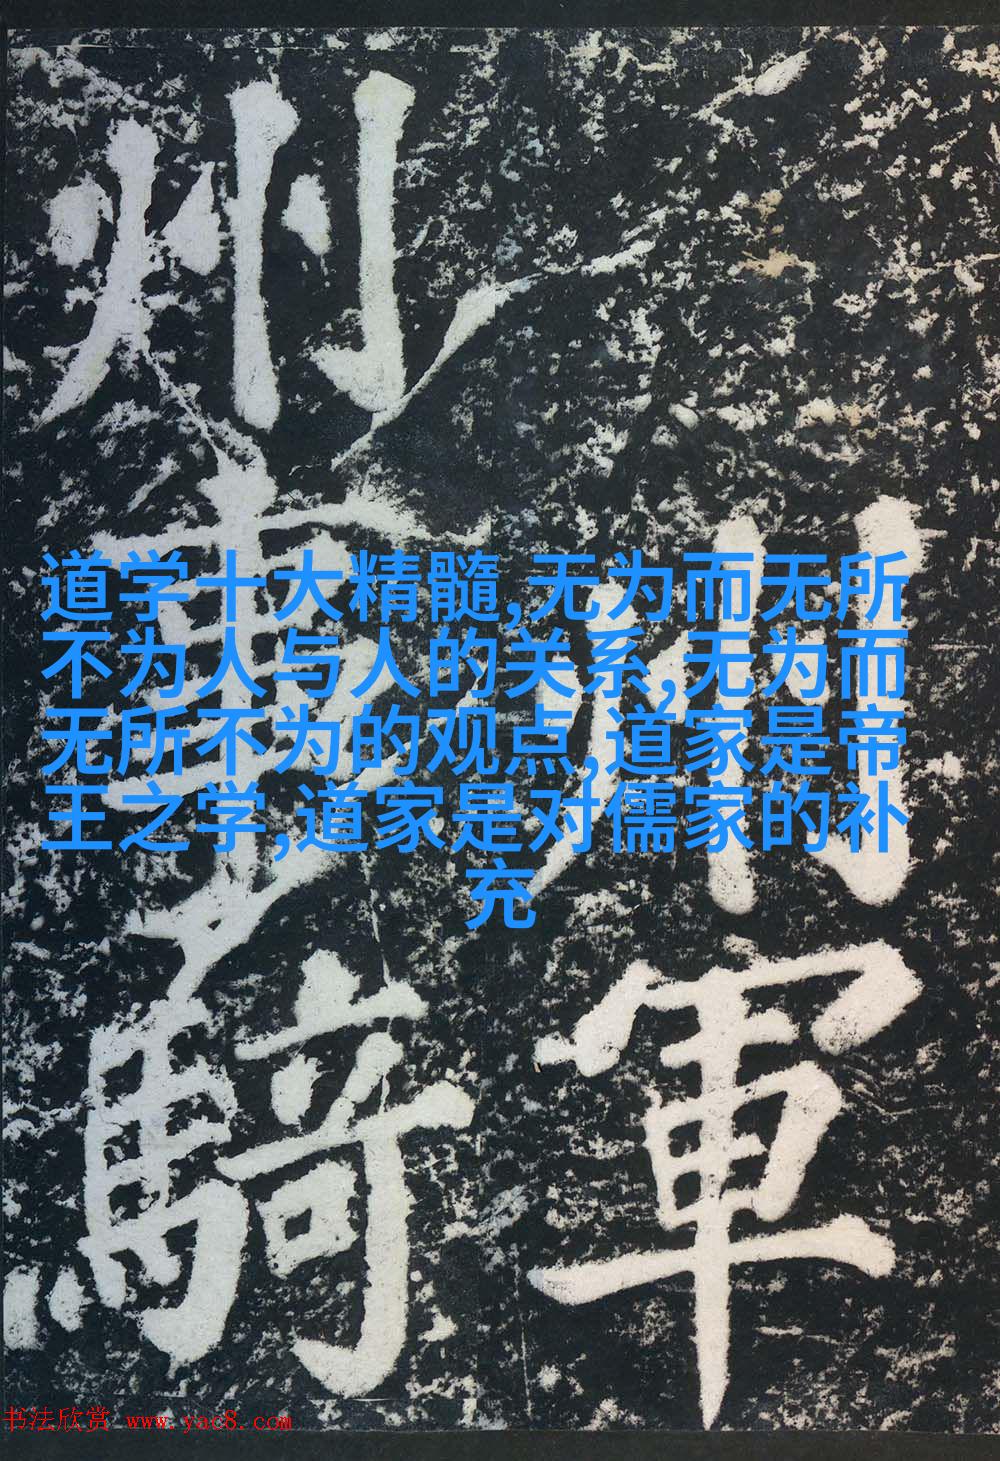 川軍
州車騎
道学十大精髓,无为而无所
不为人与人的关系,无为而
无所不为的观点,道家是帝
王之学,道家是对儒家的补
充
书法欣赏 www.yac8.com